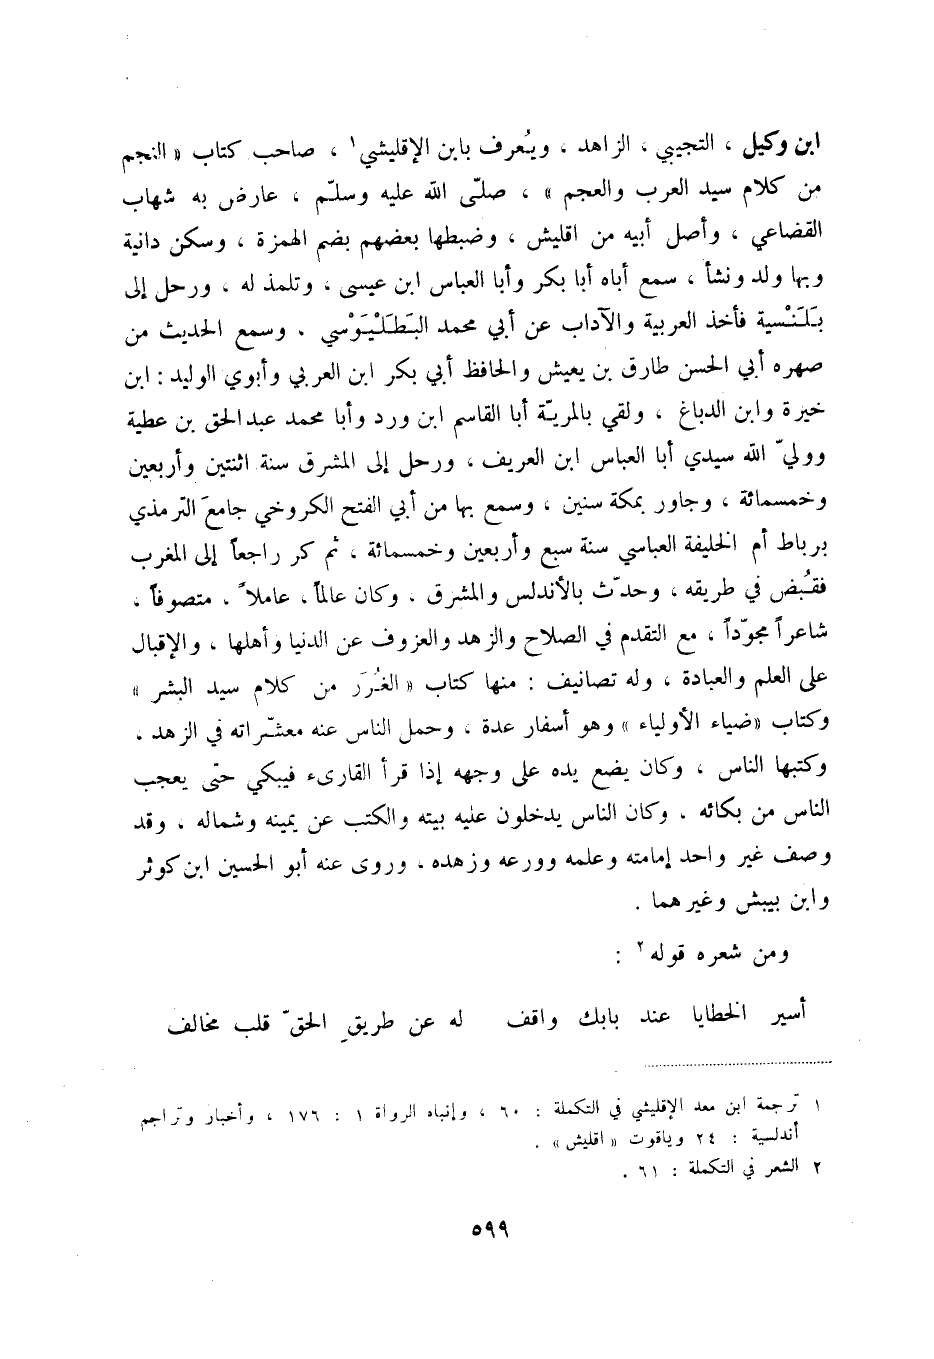 ابن وكيل ، التجيبي ، الزاهد ، ويُعرف بابن الإقليشي١ ، صاحب كتاب « النجم
من كلام سيد العرب والعجم » ، صلّى الله عليه وسلّم ، عارض به شهاب
القضاعي ، وأصل أبيه من اقليش ، وضبطها بعضهم بضم الهمزة ، وسكن دانية
وبها ولد ونشأ ، سمع أباه أبا بكر وأبا العباس ابن عيسى ، وتلمذ له ، ورحل إلى
بَلَنْسية فأخذ العربية والآداب عن أبي محمد البَطَلْيَوْسي . وسمع الحديث من
صهره أبي الحسن طارق بن يعيش والحافظ أبي بكر ابن العربي وأبوي الوليد : ابن
خيرة وابن الدباغ ، ولقي بالمريّة أبا القاسم ابن ورد وأبا محمد عبدالحق بن عطية
ووليّ الله سيدي أبا العباس ابن العريف ، ورحل إلى المشرق سنة اثنتين وأربعين
وخمسمائة ، وجاور بمكة سنين ، وسمع بها من أبي الفتح الكروخي جامعَ الترمذي
برباط أم الخليفة العباسي سنة سبع وأربعين وخمسمائة ، ثم كر راجعاً إلى المغرب
فقُبض في طريقه ، وحدّث بالأندلس والمشرق . وكان عالماً ، عاملاً ، متصوفاً ،
شاعراً مجوّداً ، مع التقدم في الصلاح والزهد والعزوف عن الدنيا وأهلها ، والإقبال
على العلم والعبادة ، وله تصانيف : منها كتاب « الغُرَر من كلام سيد البشر »
وكتاب «ضياء الأولياء » وهو أسفار عدة ، وحمل الناس عنه معشّراته في الزهد ،
وكتبها الناس ، وكان يضع يده على وجهه إذا قرأ القارىء فيبكي حتّى يعجب
الناس من بكائه . وكان الناس يدخلون عليه بيته والكتب عن يمينه وشماله ، وقد
وصف غير واحد إمامته وعلمه وورعه وزهده ، وروى عنه أبو الحسين ابن كوثر
وابن بيبش وغيرهما .
ومن شعره قوله٢ :
أسير الخطايا عند بابك واقف له عن طريقِ الحقّ قلب مخالف
١ ترجمة ابن معد الإقليشي في التكملة : ٦٠ ، وإنباه الرواة ١ : ١٧٦ ، وأخبار وتراجم
أندلسية : ٢٤ وياقوت « اقليش » .
٢ الشعر في التكملة : ٦١ .
٥٩٩